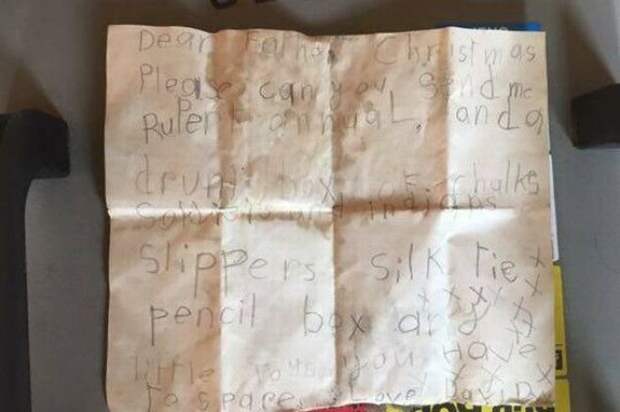 Dear Father Christmas
Please can you send me
Rupert annual. and a
drum box of chalks
Soldiers and indians
Slippers silk tie x
pencil box any x x x x x x
little toys you Have
To space Love David x x